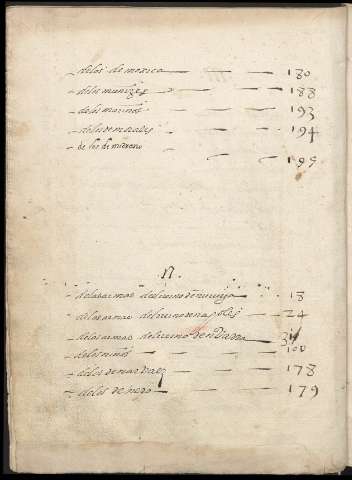 - de los de mexica — — — 180
- de los munizes — — — 188
- de los marinos — — — 193
- de los morales — — — 194
de los de moreno — — 195
.N.
- de las armas del reino de — 18
- de las armas del reino de napoles — 24
- de las armas del reino de — 3
- de los ninos — — — 100
- de los de narvaez — — — 178
- de los de nero — — — 179